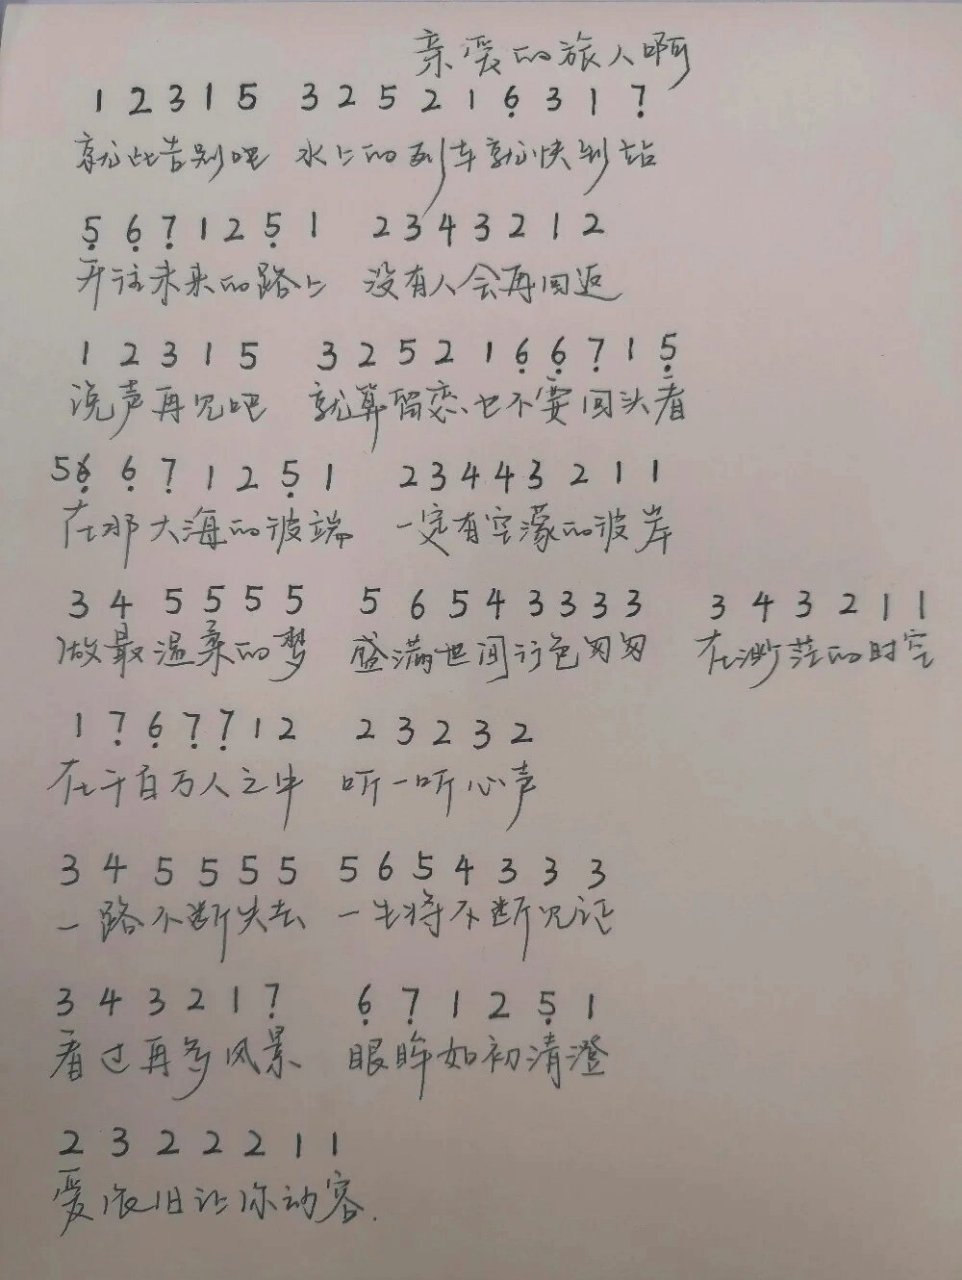 亲爱的旅人啊
1 2 3 1 5 3 2 5 2 1 6̣ 3 1 7̣
就此告别吧 水上的列车就快到站
5̣ 6̣ 7̣ 1 2 5̣ 1 2 3 4 3 2 1 2
开往未来的路上 没有人会再回返
1 2 3 1 5 3 2 5 2 1 6̣ 6̣ 7̣ 1 5̣
说声再见吧 就算留恋也不要回头看
5 6̣ 6̣ 7̣ 1 2 5̣ 1 2 3 4 4 3 2 1 1
在那大海的彼端 一定有空濛的彼岸
3 4 5 5 5 5 5 6 5 4 3 3 3 3 3 4 3 2 1 1
做最温柔的梦 盛满世间行色匆匆 在渺茫的时空
1 7̣ 6̣ 7̣ 7̣ 1 2 2 3 2 3 2
在千百万人之中 听一听心声
3 4 5 5 5 5 5 6 5 4 3 3 3
一路不断失去 一生将不断见证
3 4 3 2 1 7̣ 6̣ 7̣ 1 2 5̣ 1
看过再多风景 眼眸如初清澄
2 3 2 2 2 1 1
爱依旧让你动容.